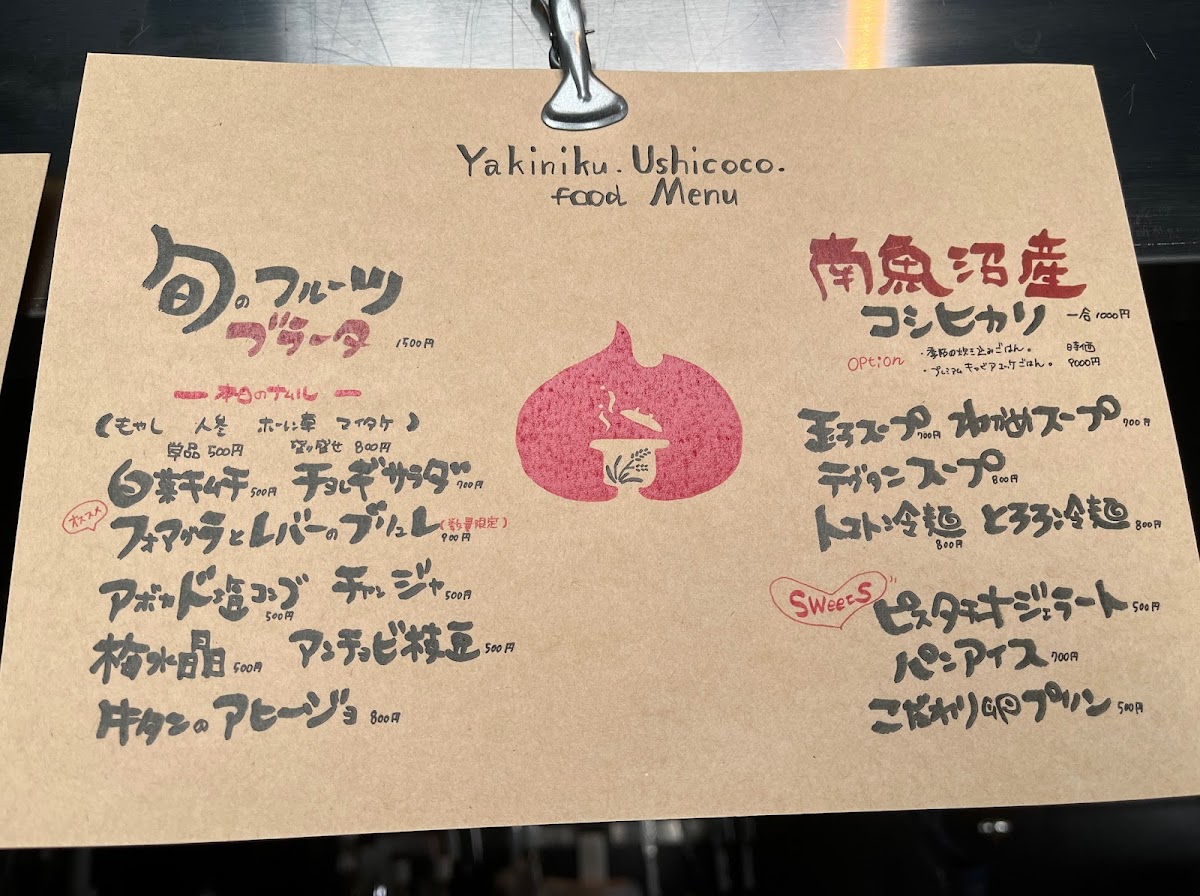 Yakiniku. Ushicoco.
food Menu
旬のフルーツ
ブラータ 1500円
本日のナムル
(もやし 人参 ホーレン草 マイタケ)
単品 500円 盛り合せ 800円
白菜キムチ 500円 チョレギサラダ 700円
オススメ
フォアグラとレバーのブリュレ (数量限定) 900円
アボカド塩コンブ 500円 チャンジャ 500円
梅水晶 500円 アンチョビ枝豆 500円
牛タンのアヒージョ 800円
南魚沼産
コシヒカリ 一合 1000円
OPtion ・季節の炊き込みごはん。 時価
・プレミアムキャビアユッケごはん。 9000円
玉子スープ 700円 わかめスープ 700円
テグタンスープ 800円
トマト冷麺 800円 とろろ冷麺 800円
SWeetS
ピスタチオジェラート 500円
パンアイス 700円
こだわり卵プリン 500円